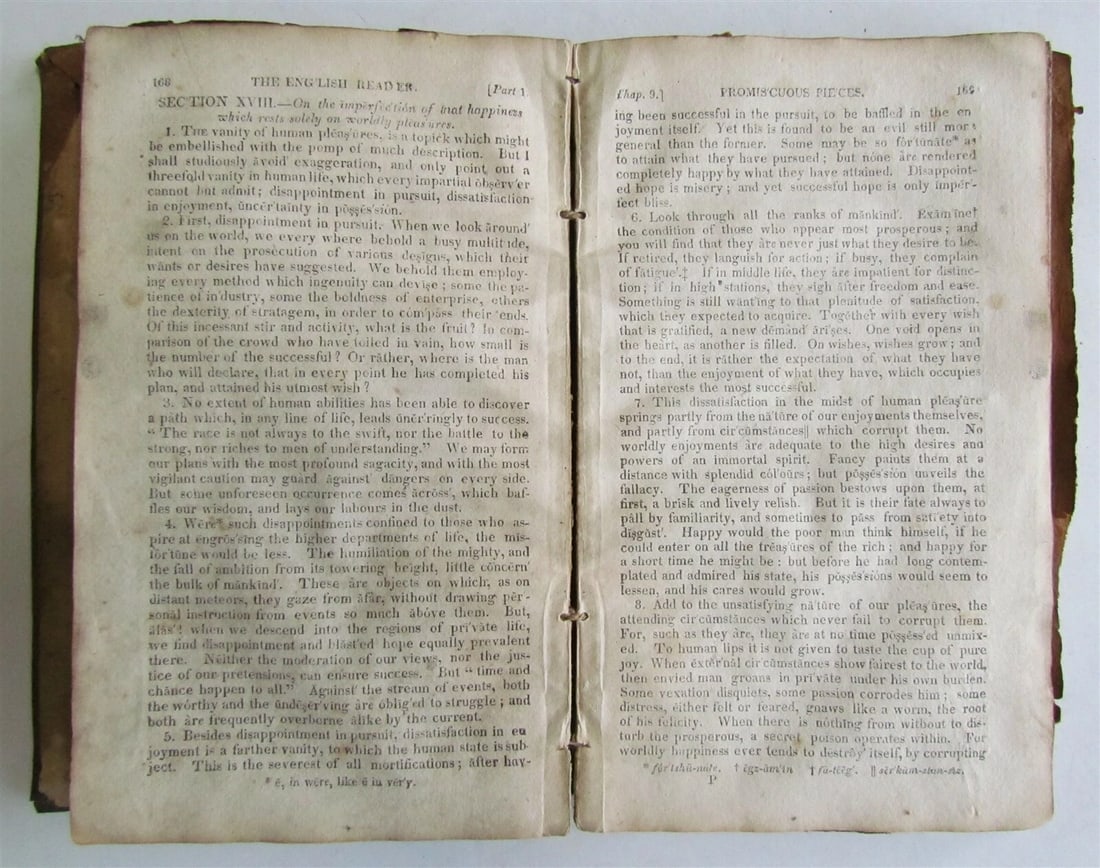 168 THE ENG'LISH READER. [Part 1
SECTION XVIII.—On the imperfection of that happiness
which rests solely on worldly pleas'ures.
1. THE vanity of human pléaş'ures, is a topick which might
be embellished with the pomp of much description. But I
shall studiously ăvoid' exaggeration, and only point out a
threefold vanity in human life, which every impartial ŏbşĕrv'er
cannot but admit; disappointment in pursuit, dissatisfaction
in enjoyment, ŭncer'tainty in pŏşşĕs'siŏn.
2. First, disappointment in pursuit. When we look ăround'
us on the world, we every where behold a busy multitude,
intent on the prosecution of various deşigns, which their
wants or desires have suggested. We behold them employ-
ing every method which ingenuity can devişe; some the pa-
tience of in'dustry, some the boldness of enterprise, others
the dexterity of stratagem, in order to cŏm'pàss their ends.
Of this incessant stir and activity, what is the fruit? In com-
parison of the crowd who have toiled in vain, how small is
the number of the successful? Or ràther, where is the man
who will declare, that in every point he has completed his
plan, and attained his utmost wish?
3. No extent of human abilities has been able to discover
a pàth which, in any line of life, leads ŭnĕr'ringly to success.
"The race is not always to the swift, nor the battle to the
strong, nor riches to men of understanding." We may form
our plans with the most profound sagacity, and with the most
vigilant caution may guard ăgainst' dăngers on every side.
But some unforeseen occurrence comes ăcrŏss', which baf-
fles our wisdom, and lays our labours in the dust.
4. Wĕre* such disappointments confined to those who as-
pire at engrŏs'sing the higher departments of life, the mis-
fŏr'tŭne would be less. The humiliation of the mighty, and
the fall of ambition from its towering height, little cŏncĕrn'
the bulk of mănkīnd'. These àre objects on which, as on
distant meteors, they gaze from ăfàr, without drawing pĕr'-
sŏnăl instruction from events so much ăbŏve them. But,
ălăs'! when we descend into the regions of prī'văte life,
we find disappointment and blàst'ed hope equally prevalent
there. Nĕither the moderation of our views, nor the jus-
tice of our pretensions, can ensure success. But "time and
chànce happen to all." Against' the stream of events, both
the wŏrthy and the ŭndĕşĕrv'ing àre oblīg'ed to struggle; and
both àre frequently overborne ălīke by the current.
5. Besides disappointment in pursuit, dissatisfaction in en
joyment is a farther vanity, to which the human state is sub-
ject. This is the severest of all mortifications; àfter hav-
* ĕ, in wĕre, like ĕ in vĕr'y.
Chap. 9.] PROMIS'CUOUS PIECES. 169
ing been successful in the pursuit, to be baffled in the en
joyment itself. Yet this is found to be an evil still more
general than the former. Some may be so fŏr'tŭnăte* as
to attain what they have pursued; but nŏne àre rendered
completely happy by what they have attained. Disappoint-
ed hope is misery; and yet successful hope is only impĕr'-
fect bliss.
6. Look through all the ranks of mănkīnd'. Exăm'ĭne†
the condition of those who appear most prosperous; and
you will find that they àre never just what they desire to be.
If retired, they languish for action; if busy, they complain
of fătigue'.‡ If in middle life, they àre impatient for distinc-
tion; if in high stations, they sigh àfter freedom and ease.
Something is still want'ing to that plenitude of satisfaction,
which they expected to acquire. Togĕther with every wish
that is gratified, a new dĕmànd' ărī'şes. One void opens in
the heàrt, as another is filled. On wishes, wishes grow; and
to the end, it is ràther the expectation of what they have
not, than the enjoyment of what they have, which occupies
and interests the most successful.
7. This dissatisfaction in the midst of human pléaş'ŭre
springs partly from the nā'tŭre of our enjoyments themselves,
and partly from cir'cŭmstănces|| which corrupt them. No
worldly enjoyments àre adequate to the high desires and
powers of an immortal spirit. Fancy paints them at a
distance with splendid cŏl'oŭrs; but pŏşşĕs'siŏn unveils the
fallacy. The eagerness of passion bestows upon them, at
first, a brisk and lively relish. But it is their fate always to
pàll by familiarity, and sometimes to pàss from satiety into
dĭşgŭst'. Happy would the poor man think himself, if he
could enter on all the trĕaş'ŭres of the rich; and happy for
a short time he might be: but before he had long contem-
plated and admired his state, his pŏşşĕs'siŏns would seem to
lessen, and his cares would grow.
8. Add to the unsatisfying nā'tŭre of our pléaş'ŭres, the
attending cir'cŭmstănces which never fail to corrupt them.
For, such as they àre, they àre at no time pŏşşĕss'ed unmix-
ed. To human lips it is not given to taste the cup of pure
joy. When ĕxtĕr'năl cir'cŭmstănces show fairest to the world,
then envied man groans in prī'văte under his own burden.
Some vexation disquiets, some passion corrodes him; some
distress, either felt or feared, gnaws like a worm, the root
of his felicity. When there is nŏthing from without to dis-
turb the prosperous, a secret poison operates within. For
worldly happiness ever tends to destrŏy' itself, by corrupting
* fŏr'tshŭ-năte. † ĕgz-ăm'ĭn ‡ fă-tēēg'. || sĕr'kŭm-stăn-sĕs.
P